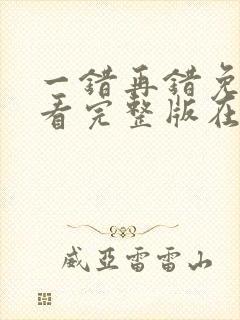 一错再错免
看完整版在
威亚雷雷山